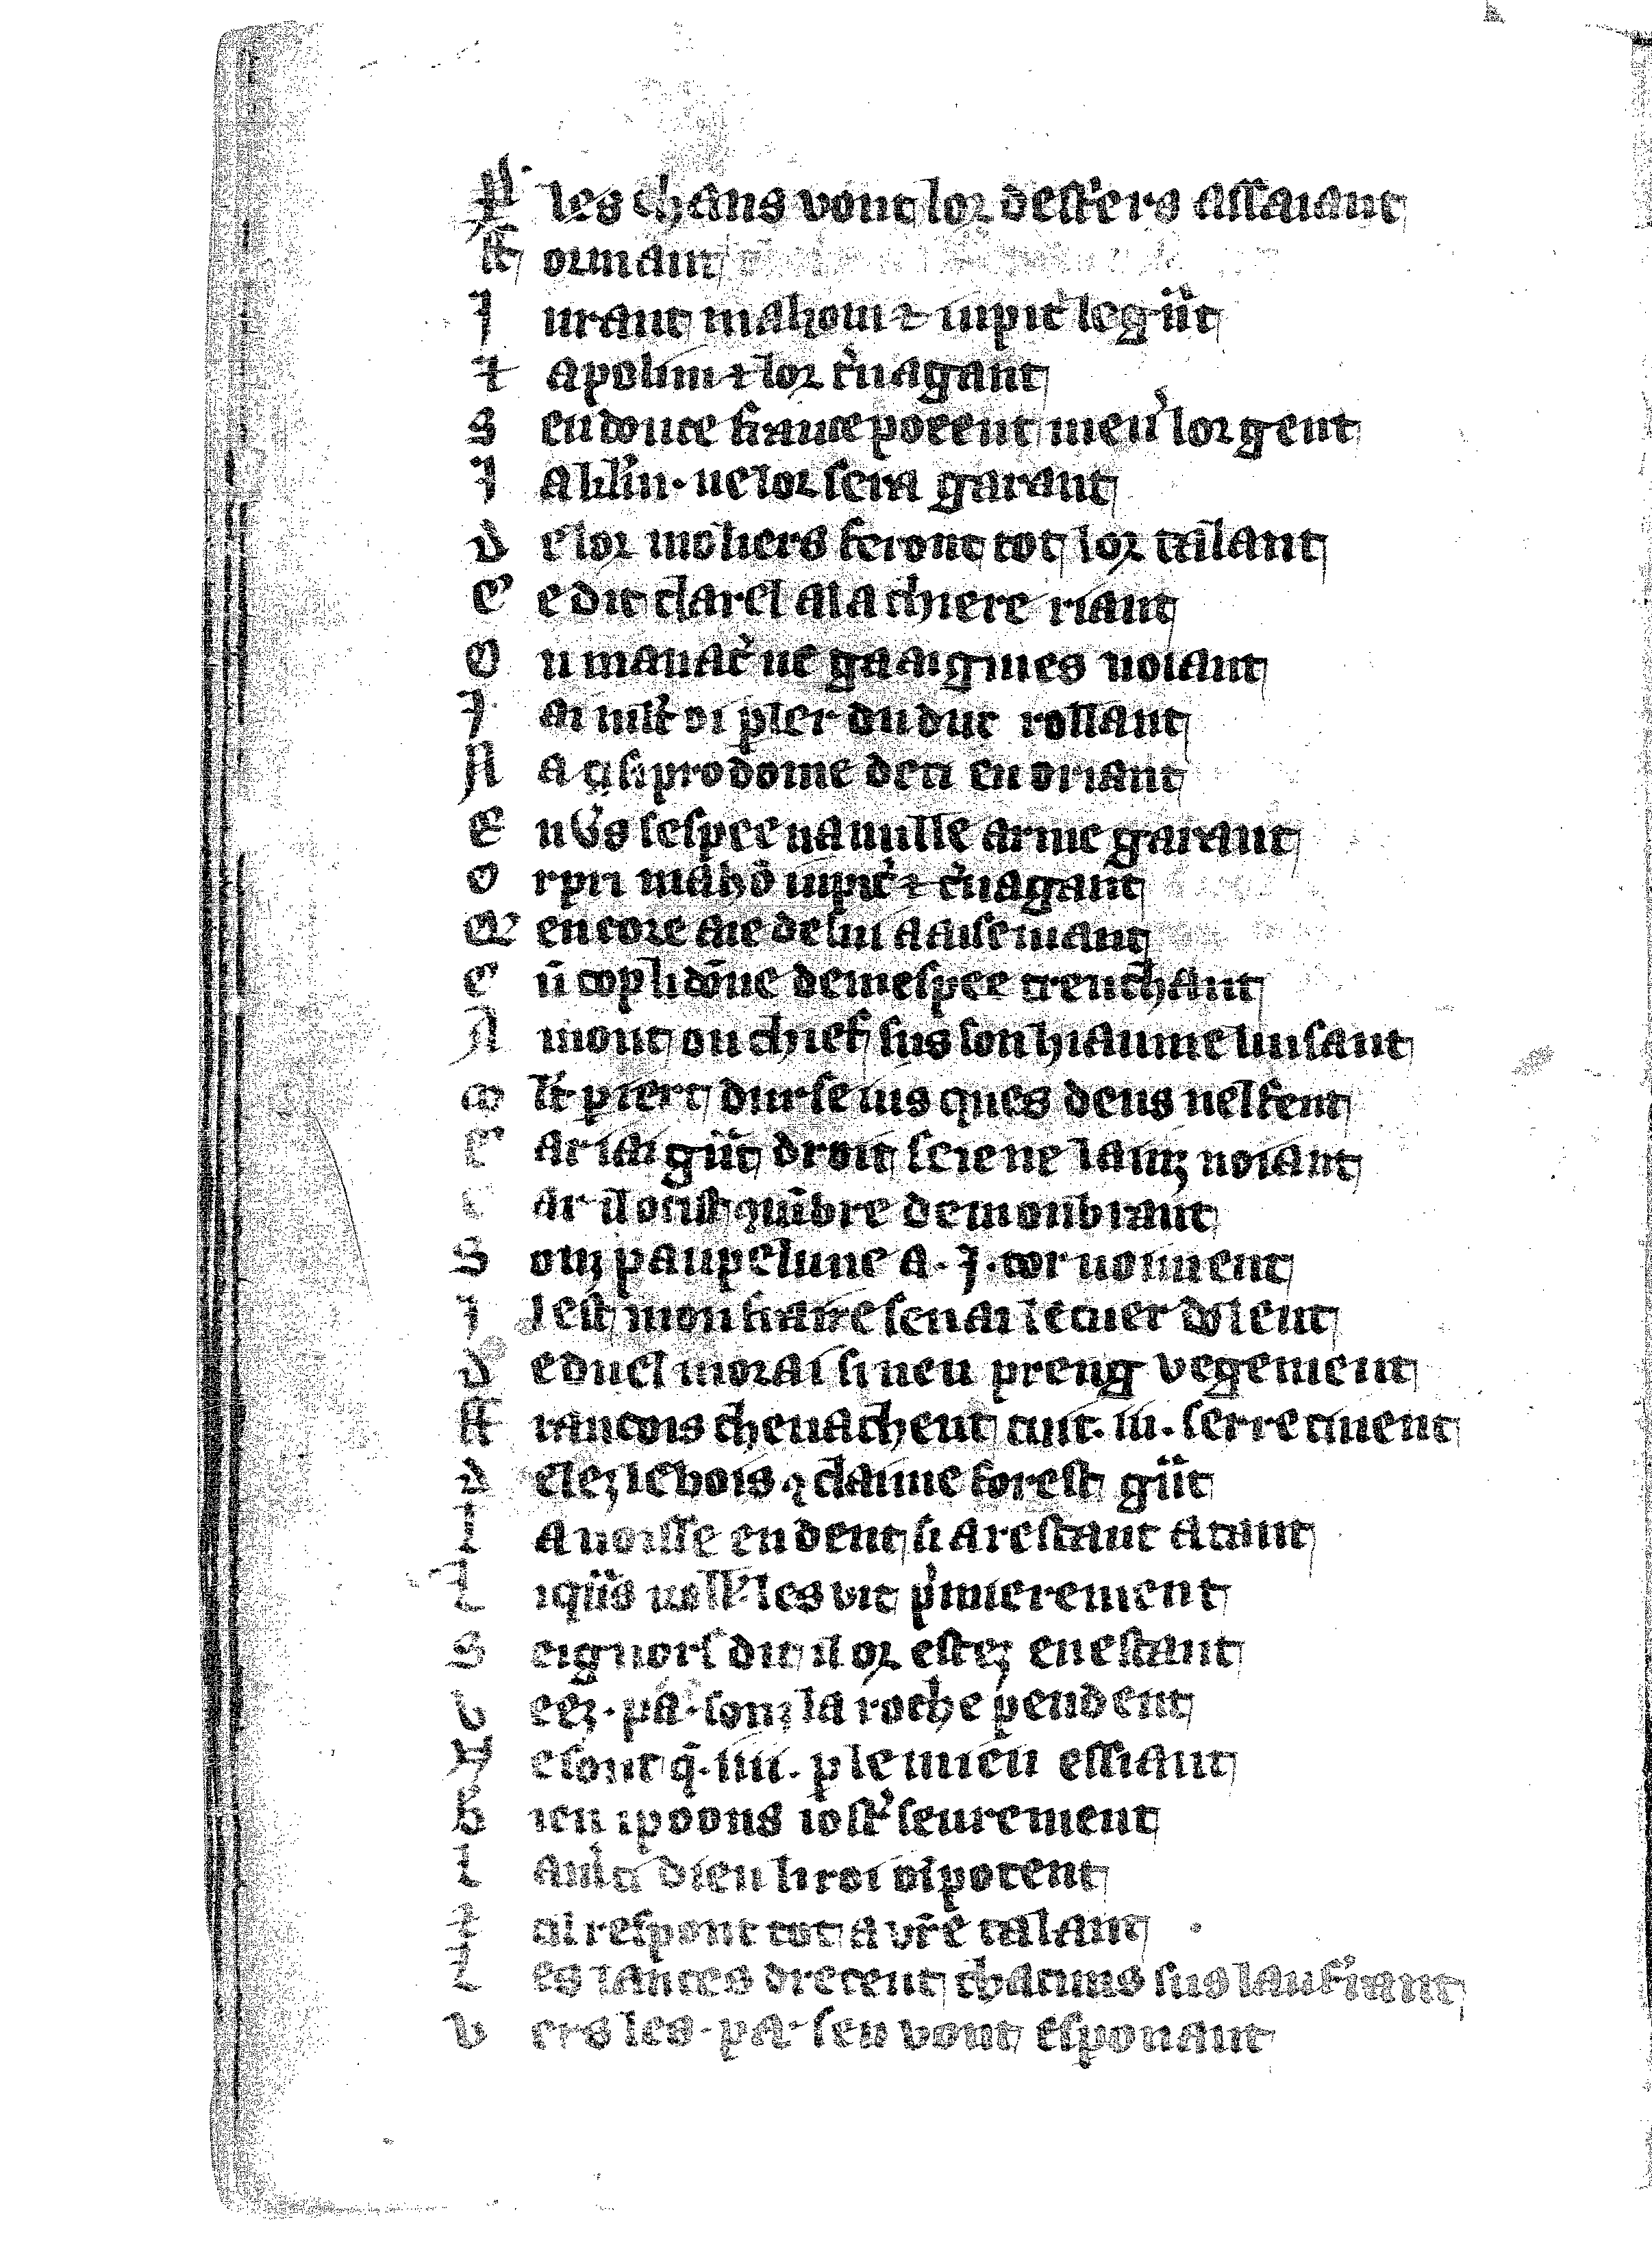 A les chans vont lor destrers assaiant
F ormant
J urant mahom ⁊ iupit' le g̃nt
⁊ apolin ⁊ lor t'uagant
S en douce france pocent metr' lor gent
J a k'lľn · ne lor sera garant
D e lor moliers feront tot lor talant
C e dit clarel a la chiere riant
O u manac' ne gaaignies noiant
J ai mlt oi pler du duc rollant
N a q̃ si prodome deci en oriant
E nũs sespee na nulle arme garant
O r pri mahõ iupit' ⁊ t'uagant
Q encore aie de lui aaisemant
C ũ cop li dõne de mespee trenchant
A mont ou chief sus son hiaume luisant
M lt p iert durs se ius ques dens nel fent
C ar iai g̃nt droit se ie ne laim ꝫ noiant
C ar il ocist quãbre de monbrant
S oꝫ paupelune a · J · tor noiment
J l est mon frare sen ai le cuer dolent
D e duel morai si nen preng vegement
F rancois cheuachent tuit · iii · serreement
D elez le bois q̃ claime forest g̃nt
L a noisse endent si arestant atant
L i q̃ns roll' les vit p'mierement
S eignors dit il or estez en estant
V eez · pa · soꝫ la roche pendent
N e sont q̃ · iiii · p le mien essiant
B ien i poons iost' seurement
L aud'a dieu li roi oĩpotent
⁊ cil respont tot a vr̃e talant
L es lances drecent chacuns sus lauf'rant
V ers les · pa · sen vont esponant